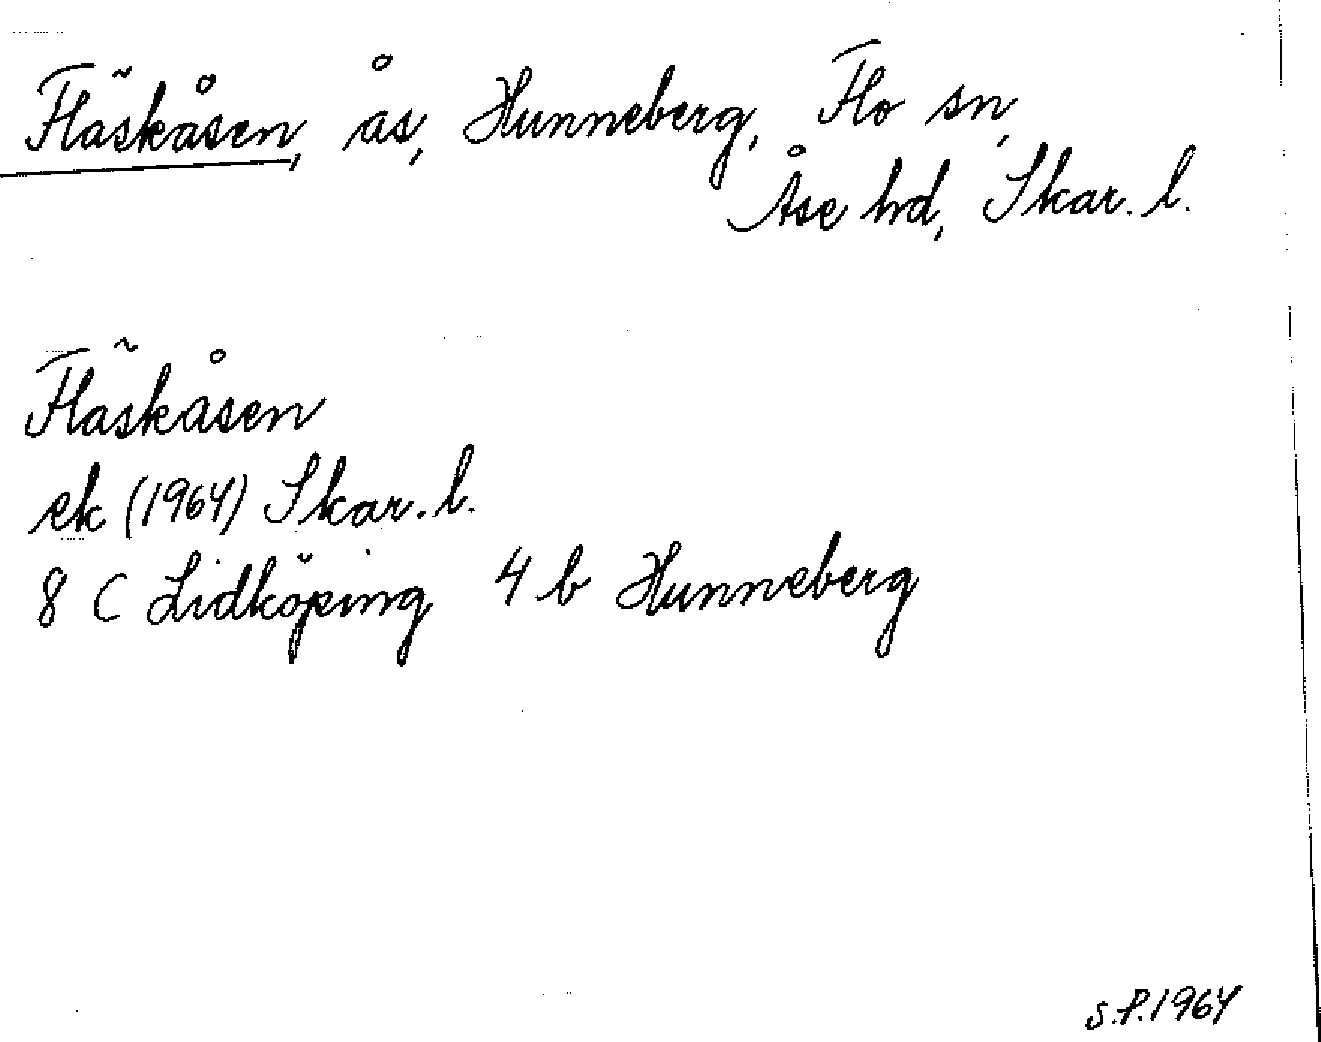 Fläskåsen, ås, Hunneberg, Flo sn,
Åse hd, Skar. l.
Fläskåsen
ek (1964) Skar. l.
8 C Lidköping 4 b Hunneberg
S.P. 1964